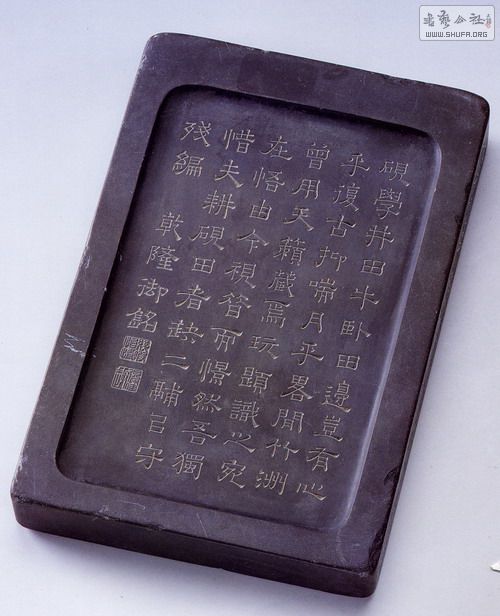 書藝公社
WWW.SHUFA.ORG
硯學井田牛卧田邊豈有心
乎復古抑喘月乎畧聞竹洲
曾用天籟藏焉玩題識之宛
在悟由今視昔而憬然吾獨
惜夫耕硯田者缺二㠯守
殘編 乾隆御銘